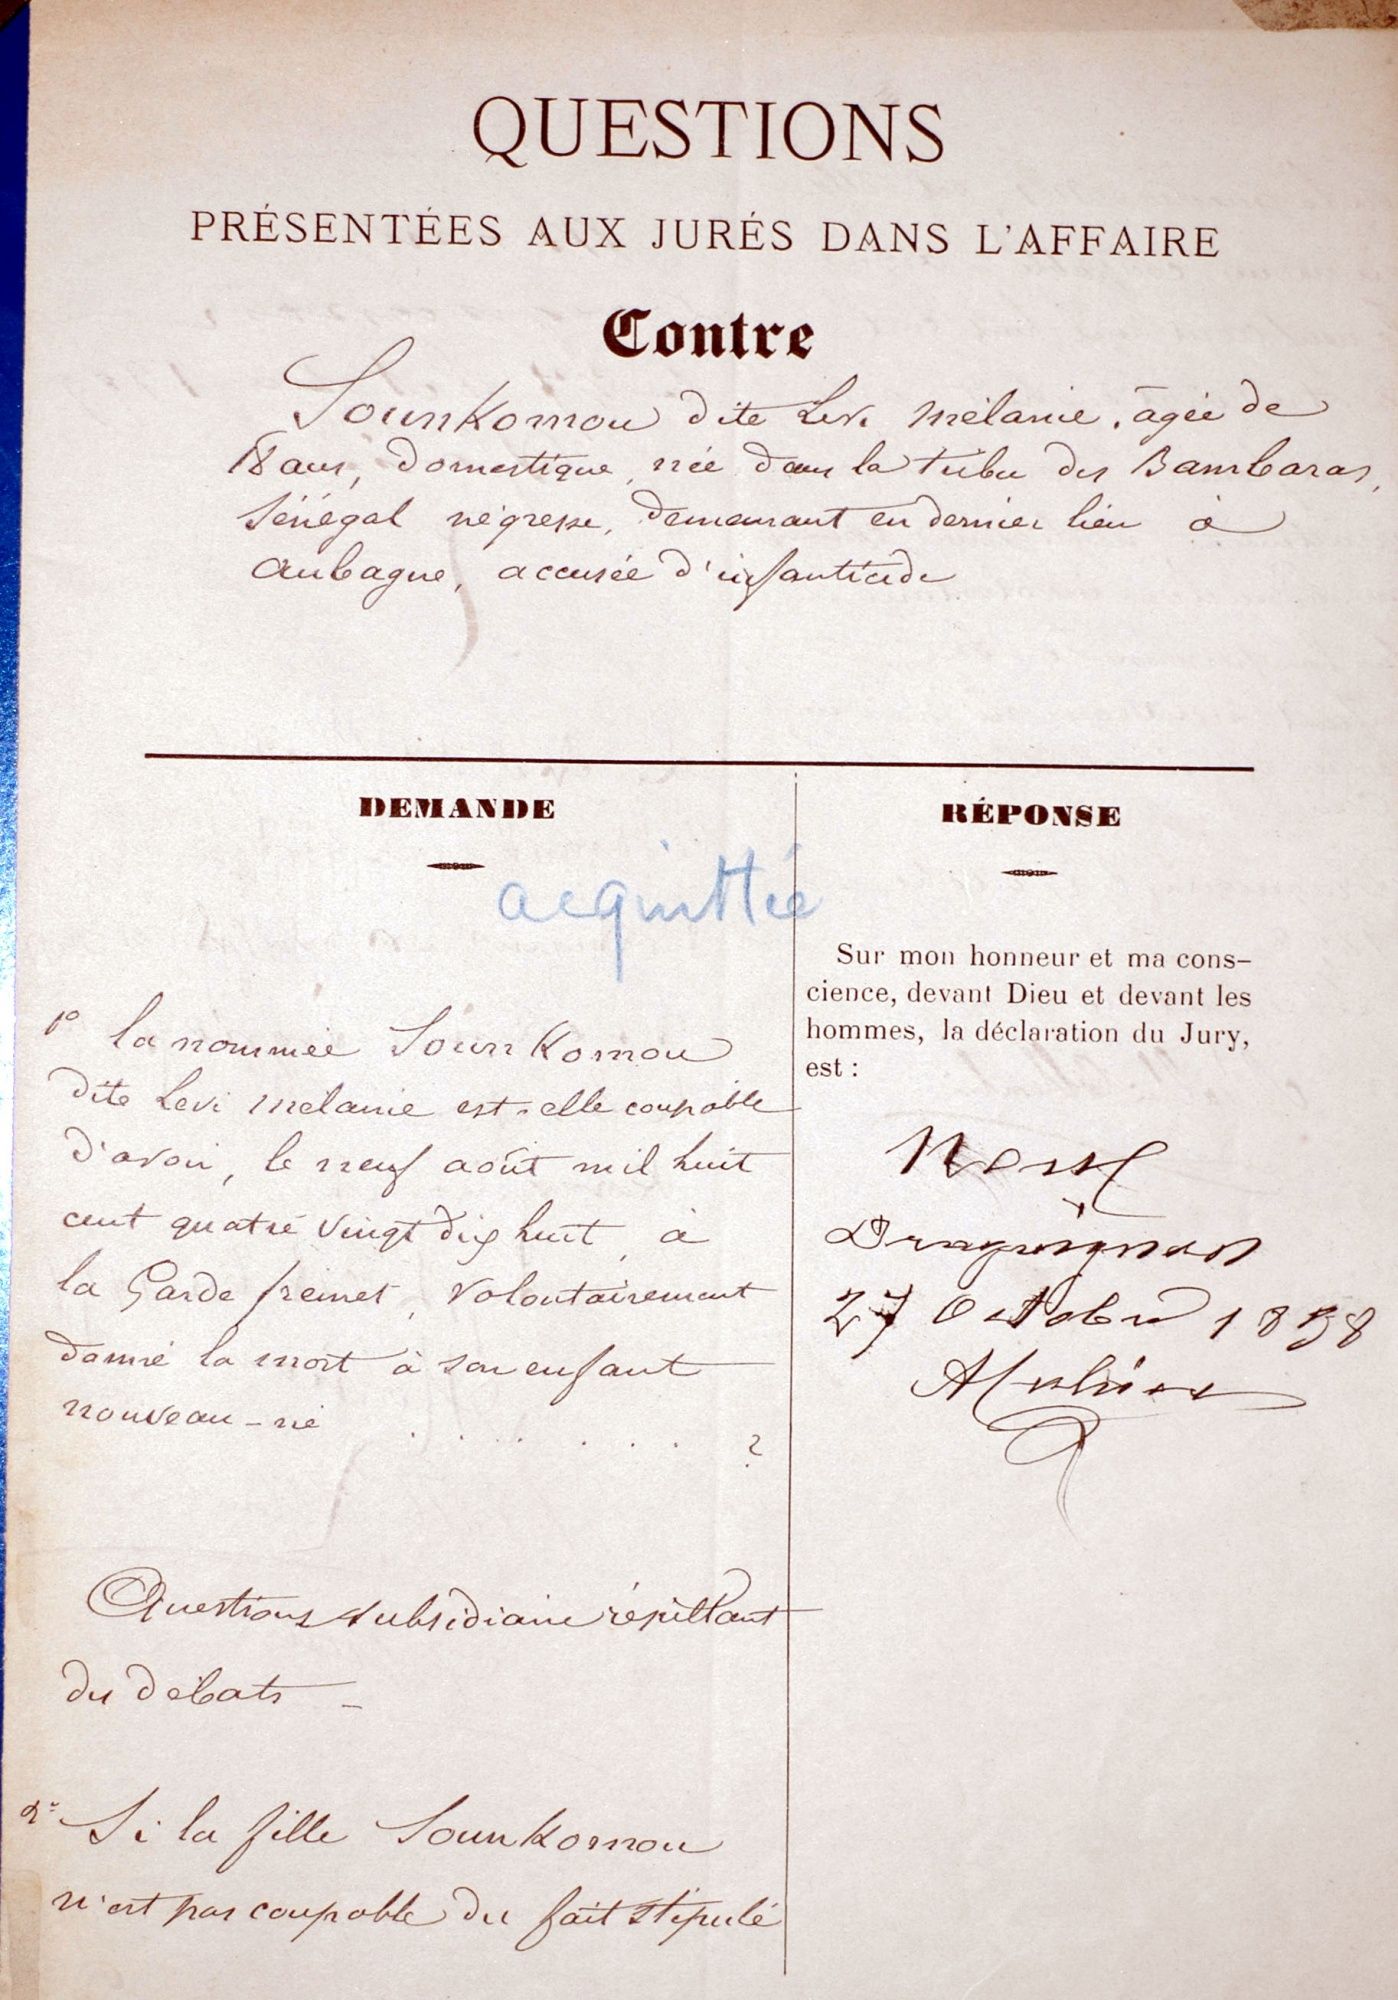 QUESTIONS
PRÉSENTÉES AUX JURÉS DANS L'AFFAIRE
Contre
Sounkomou dite Levi Mélanie, âgée de
18 ans, domestique, née dans la tribu des Bambaras,
Sénégal négresse, demeurant en dernier lieu à
Aubagne, accusée d'infanticide
DEMANDE
acquittée
1º la nommée Sounkomou
dite Levi Mélanie est-elle coupable
d'avoir, le neuf août mil huit
cent quatre vingt dix huit, à
la Garde freinet, volontairement
donné la mort à son enfant
nouveau-né . . . . . . ?
Questions subsidiaire résultant
des débats -
2º Si la fille Sounkomou
n'est pas coupable du fait stipulé
RÉPONSE
Sur mon honneur et ma cons-
cience, devant Dieu et devant les
hommes, la déclaration du Jury,
est :
Non
Draguignan
27 Octobre 1898